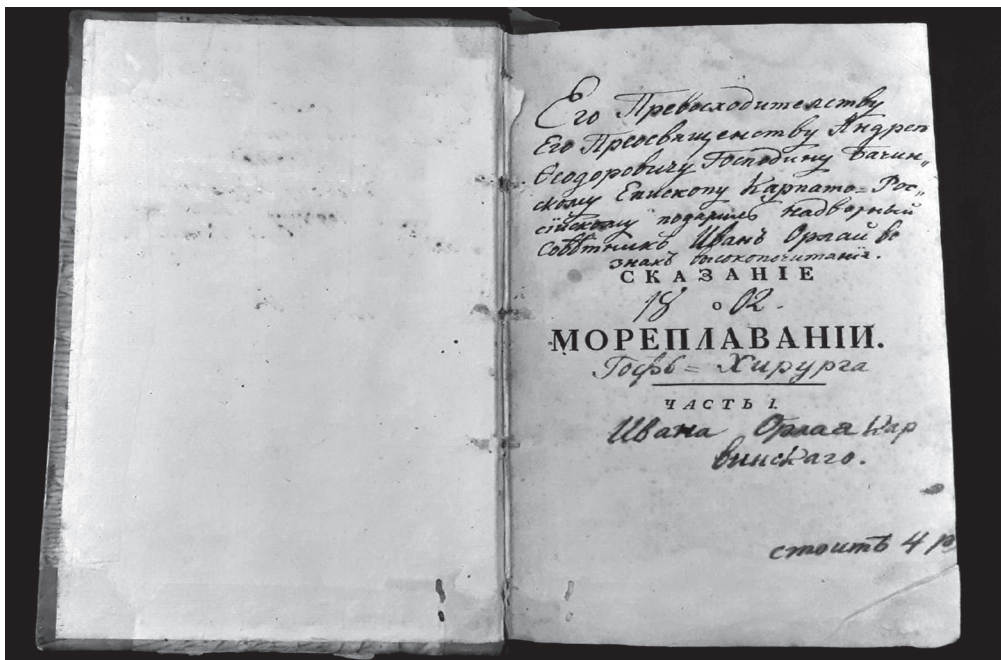 Его Превосходительству
Его Преосвященству Андрею
Ѳеодоровичу Господину Бачин„
скому Епископу Карпато=Рос„
сійскому подарилъ Надворный
Совѣтникъ Иванъ Орлай во
знакъ высокопочитанія.
СКАЗАНІЕ
18 о 02.
МОРЕПЛАВАНІИ.
Гофъ= Хирурга
ЧАСТЬ I.
Ивана Орлая Кар
винскаго.
стоитъ 4 р